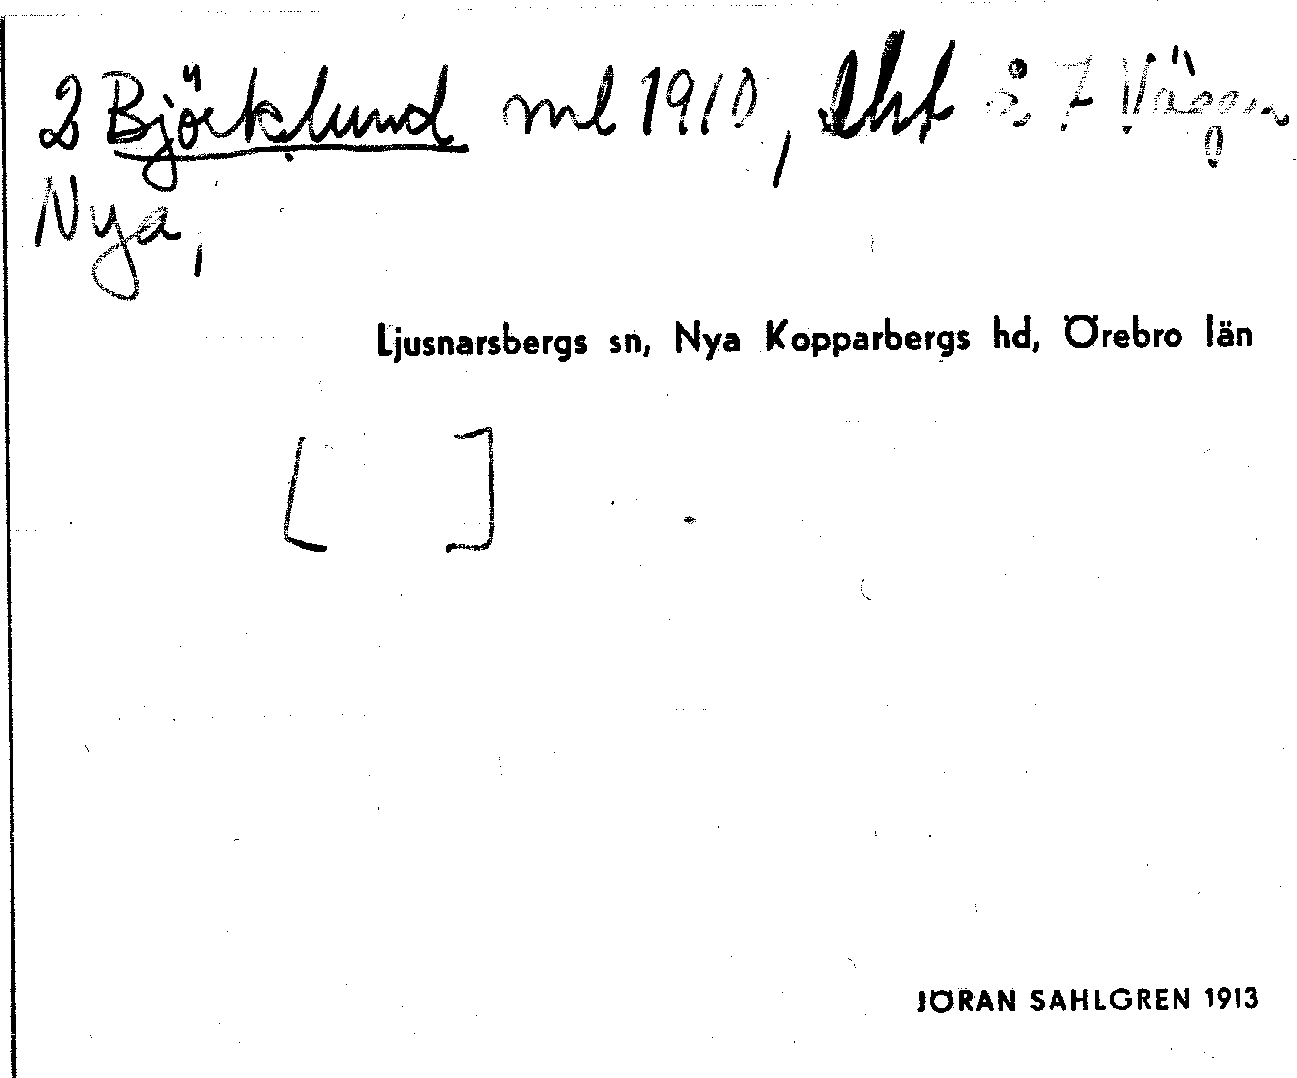 2 Björklund ml 1910, lht å 7 Väggen
Nya,
Ljusnarsbergs sn, Nya Kopparbergs hd, Örebro län
[ ]
JÖRAN SAHLGREN 1913